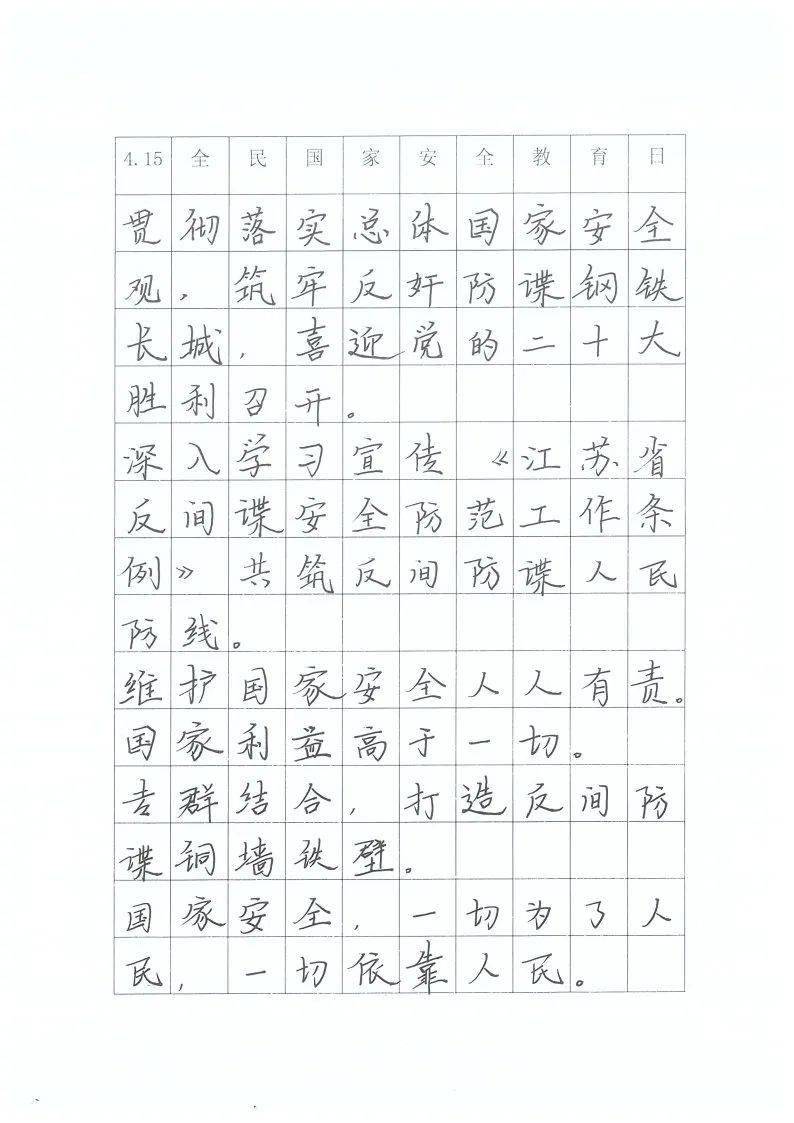 4.15全民国家安全教育日
贯彻落实总体国家安全
观,筑牢反奸防谍钢铁
长城,喜迎党的二十大
胜利召开。
深入学习宣传《江苏省
反间谍安全防范工作条
例》共筑反间防谍人民
防线。
维护国家安全人人有责。
国家利益高于一切。
专群结合,打造反间防
谍铜墙铁壁。
国家安全,一切为了人
民,一切依靠人民。